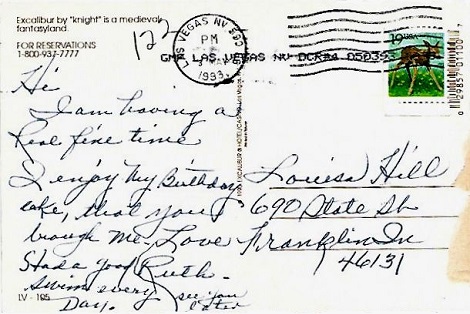 Excalibur by "knight" is a medieval
fantasyland.
FOR RESERVATIONS
1-800-937-7777
122
LAS VEGAS NV 890
PM
1993
GMF LAS VEGAS NV DCR#4
19 USA
Hi
I am having a
Real fine time
I enjoy my Birthday
cake, that you
brough me. Love
Had a good Ruth.
swim every
Day. see you
later
Louisa Hill
690 State St
Franklin In
46131
LV - 105